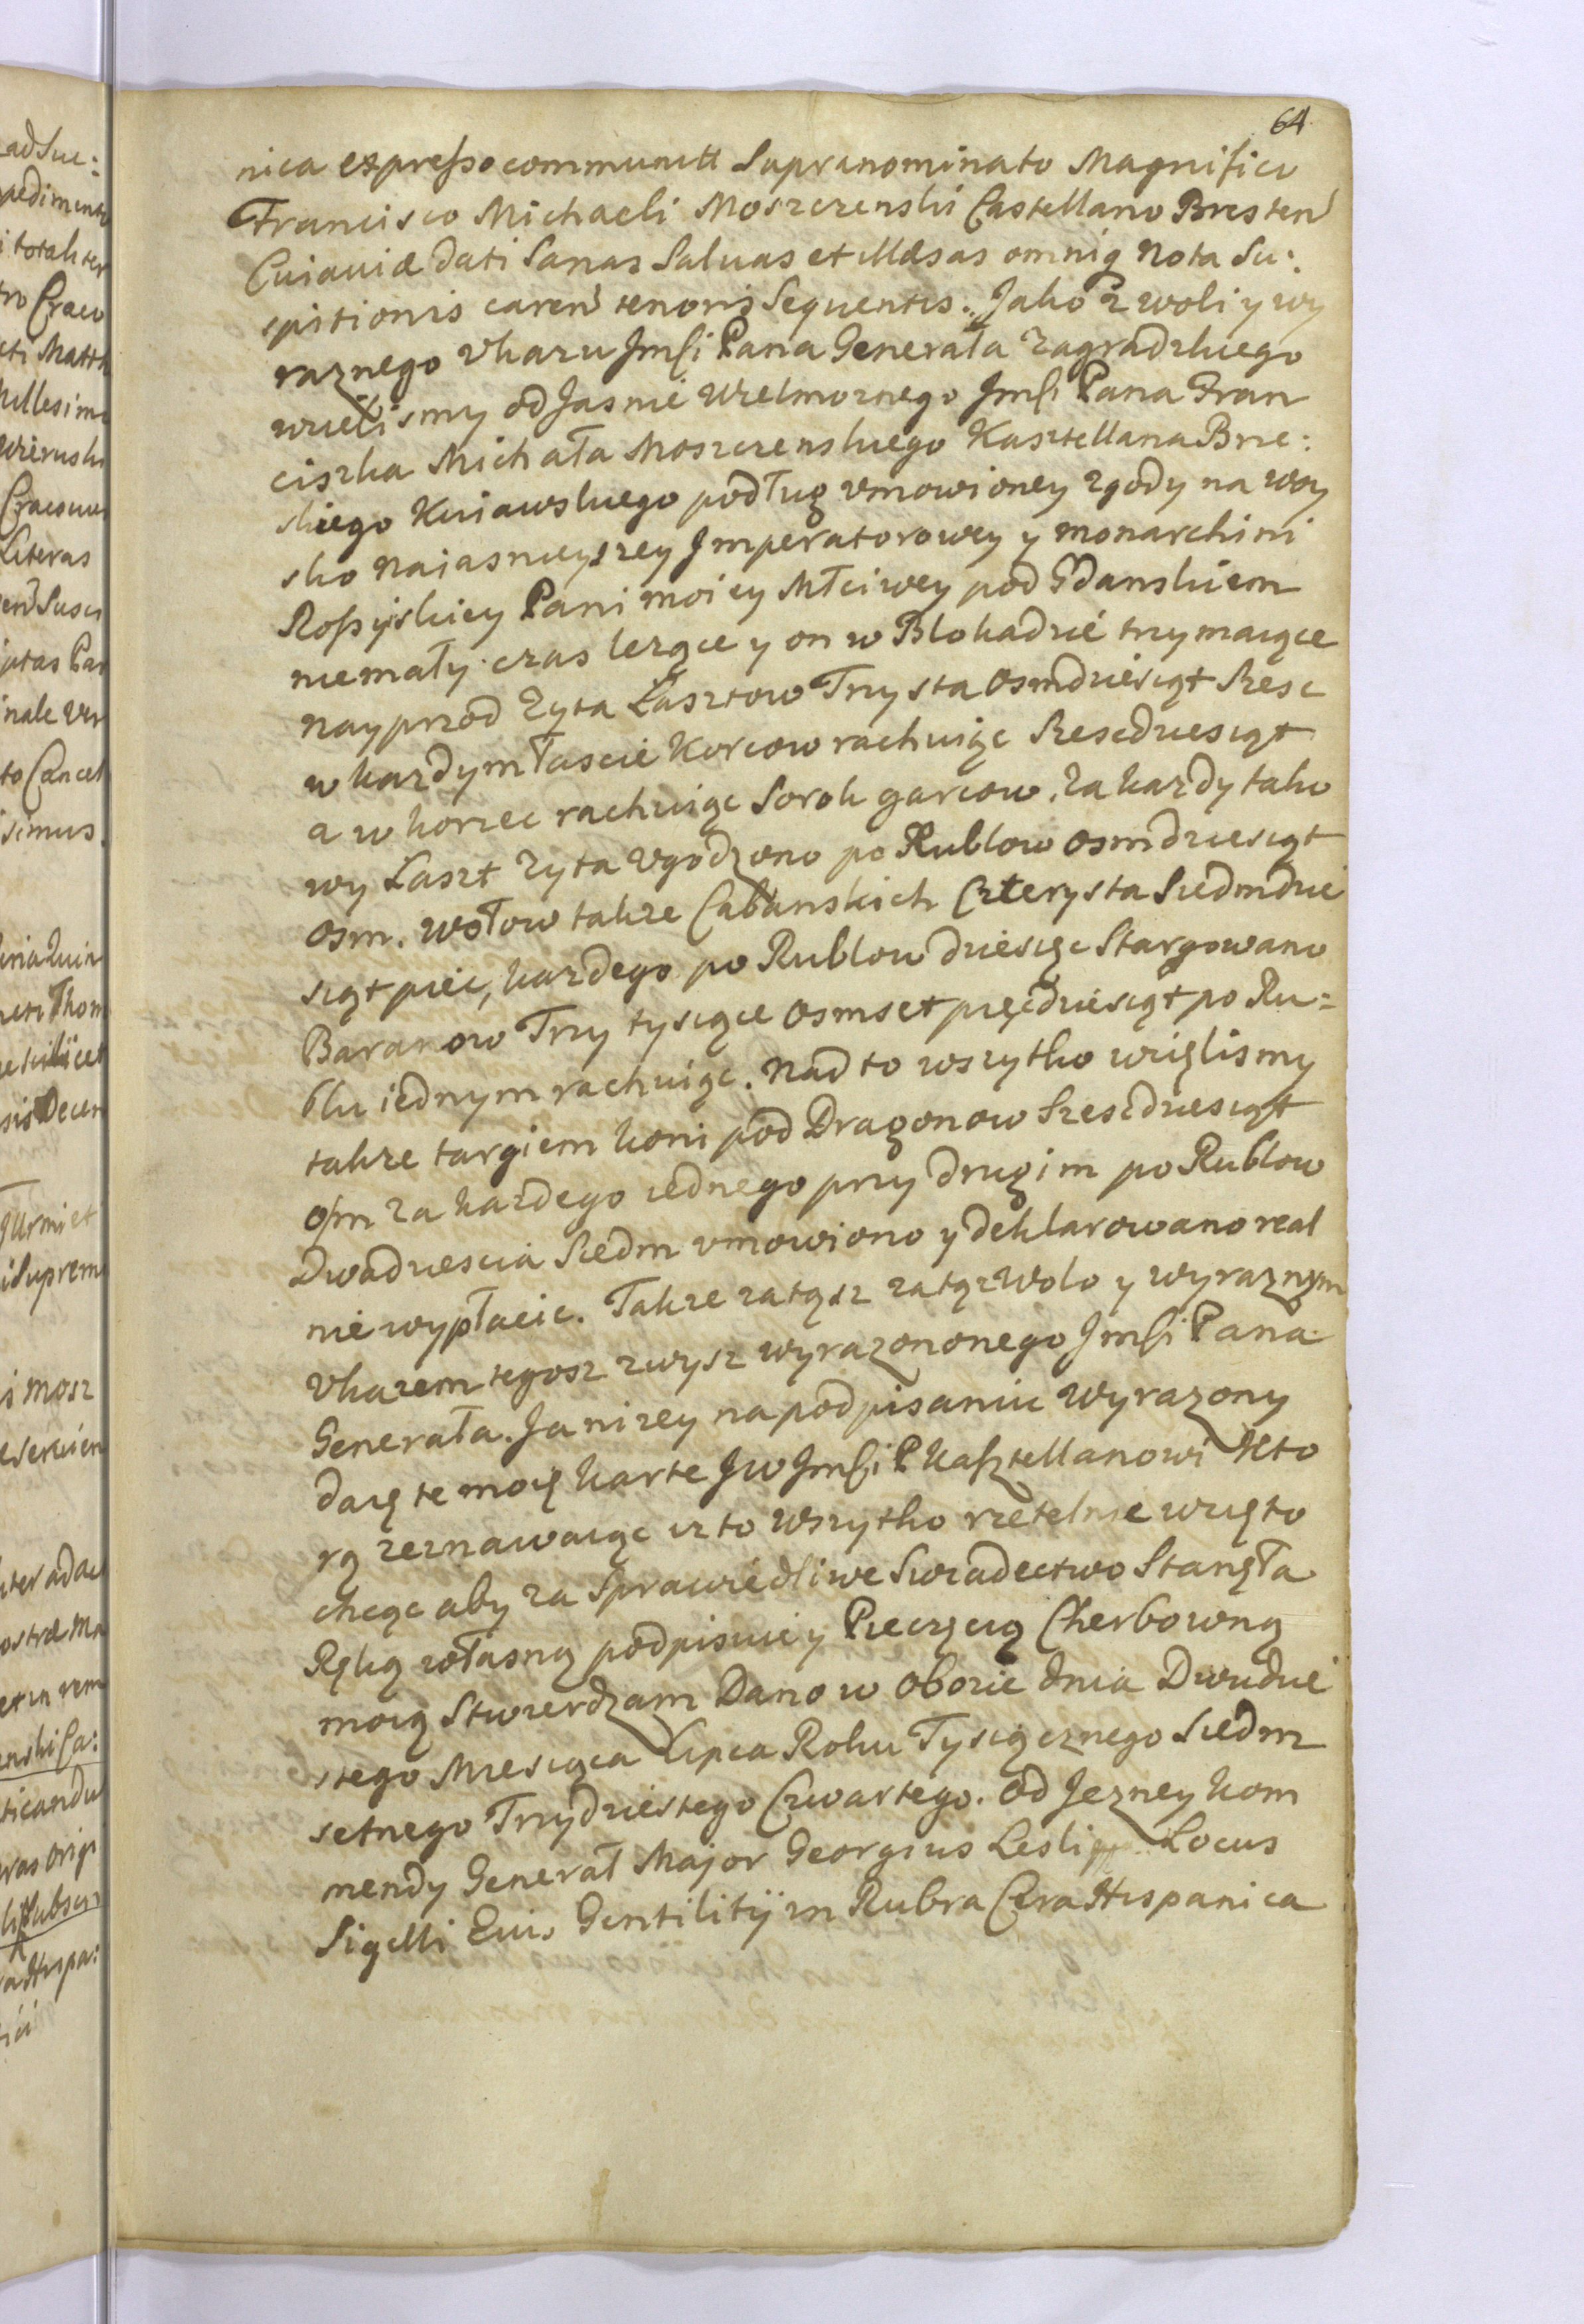 64
nica expresso communitt Supranominato Magnifico
Francisco Michaeli Moszczenski Castellano Bresten
Cuiaviæ dati Sanas Salvas et illæsas omniq Nota Su:
spitionis caren tenoris Sequentis. Jako z woli y wy
raznego Ukazu Jmsci Pana Generała Zagradzkiego
wzielismy od Jasnie Wielmoznego Jmsci Pana Fran
ciszka Michała Moszczenskiego Kasztellana Brze:
skiego Kuiawskiego podług umowioney zgody na woy
sko Naiasnieyszey Jmperatorowey y Monarchini
Rossyiskiey Pani moiey Młciwey pod Gdanskiem
niemały czas lezące y on w Blokadzie trzymaiące
Nayprzod Zyta Łasztow Trzysta osmdziesiąt Szesc
w kazdym łascie Korcow rachuiąc Szescdziesiąt
a w korzec rachuiąc Sorok garcow. Za kazdy tako
wy Łaszt Zyta Ugodzono po Rublow osmdziesiąt
osm. Wołow takze Cabanskich Czterysta Siedmdzie
siąt piec, kazdego po Rublow dziesięc Stargowano
Baranow Trzy tysiące osmset pięcdziesiąt po Ru=
blu iednym rachuiąc. Nad to wszytko wzięlismy
takze targiem koni pod Dragonow Szescdziesiąt
osm za kazdego iednego przy drugim po Rublow
Dwadziescia Siedm umowiono y deklarowano real
nie wypłacic. Takze zatąsz zatąz Wolo y wyraznym
Ukazem tegosz zwysz wyrazononego Jmsci Pana
Generała. Ja nizey na podpisaniu Wyrazony
daię te moię karte Jw Jmsci P Kasztellanowi Kto
rą zeznawaiąc iz to Wszytko rzetelnie wzięto
chcąc aby za Sprawiedliwe Swiadectwo Stanęła
Ręką własną podpisuie y Pieczęcią Cherbowną
moią Stwierdzam Dano w obozie dnia Dwudzie
stego Miesiąca Lipca Roku Tysiącznego Siedm
setnego Trzydziestego Czwartego. Od Jezney kom
mendy Generał Major Georgius Lesli Locus
Sigilli Eius Gentilitÿ in Rubra Cera Hispanica